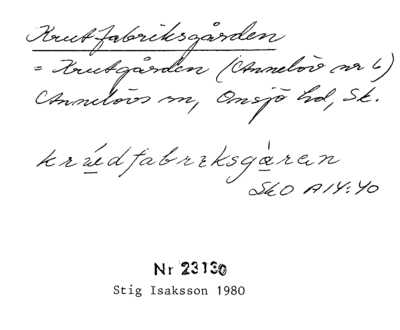 Krutfabriksgården
= Krutgården (Annelöv nr 6)
Annelövs sn, Onsjö hd, Sk.
krúdfabrıksgàren
SkO A14:40
Nr 23130
Stig Isaksson 1980